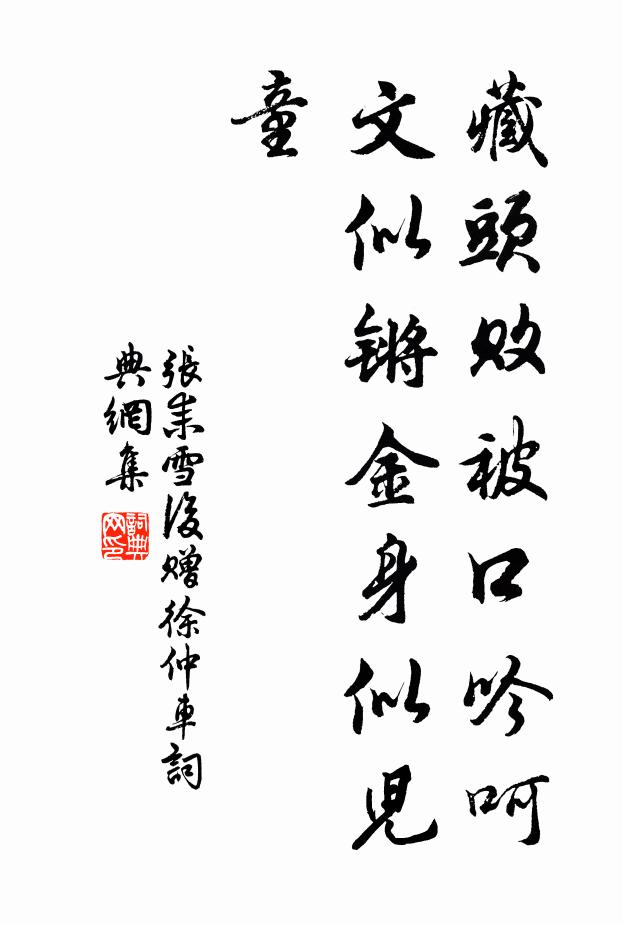 藏頭敗被口吟呵
文似锵金身似兒
童
張耒雪後贈徐仲車詞
典網集
詞典
网印